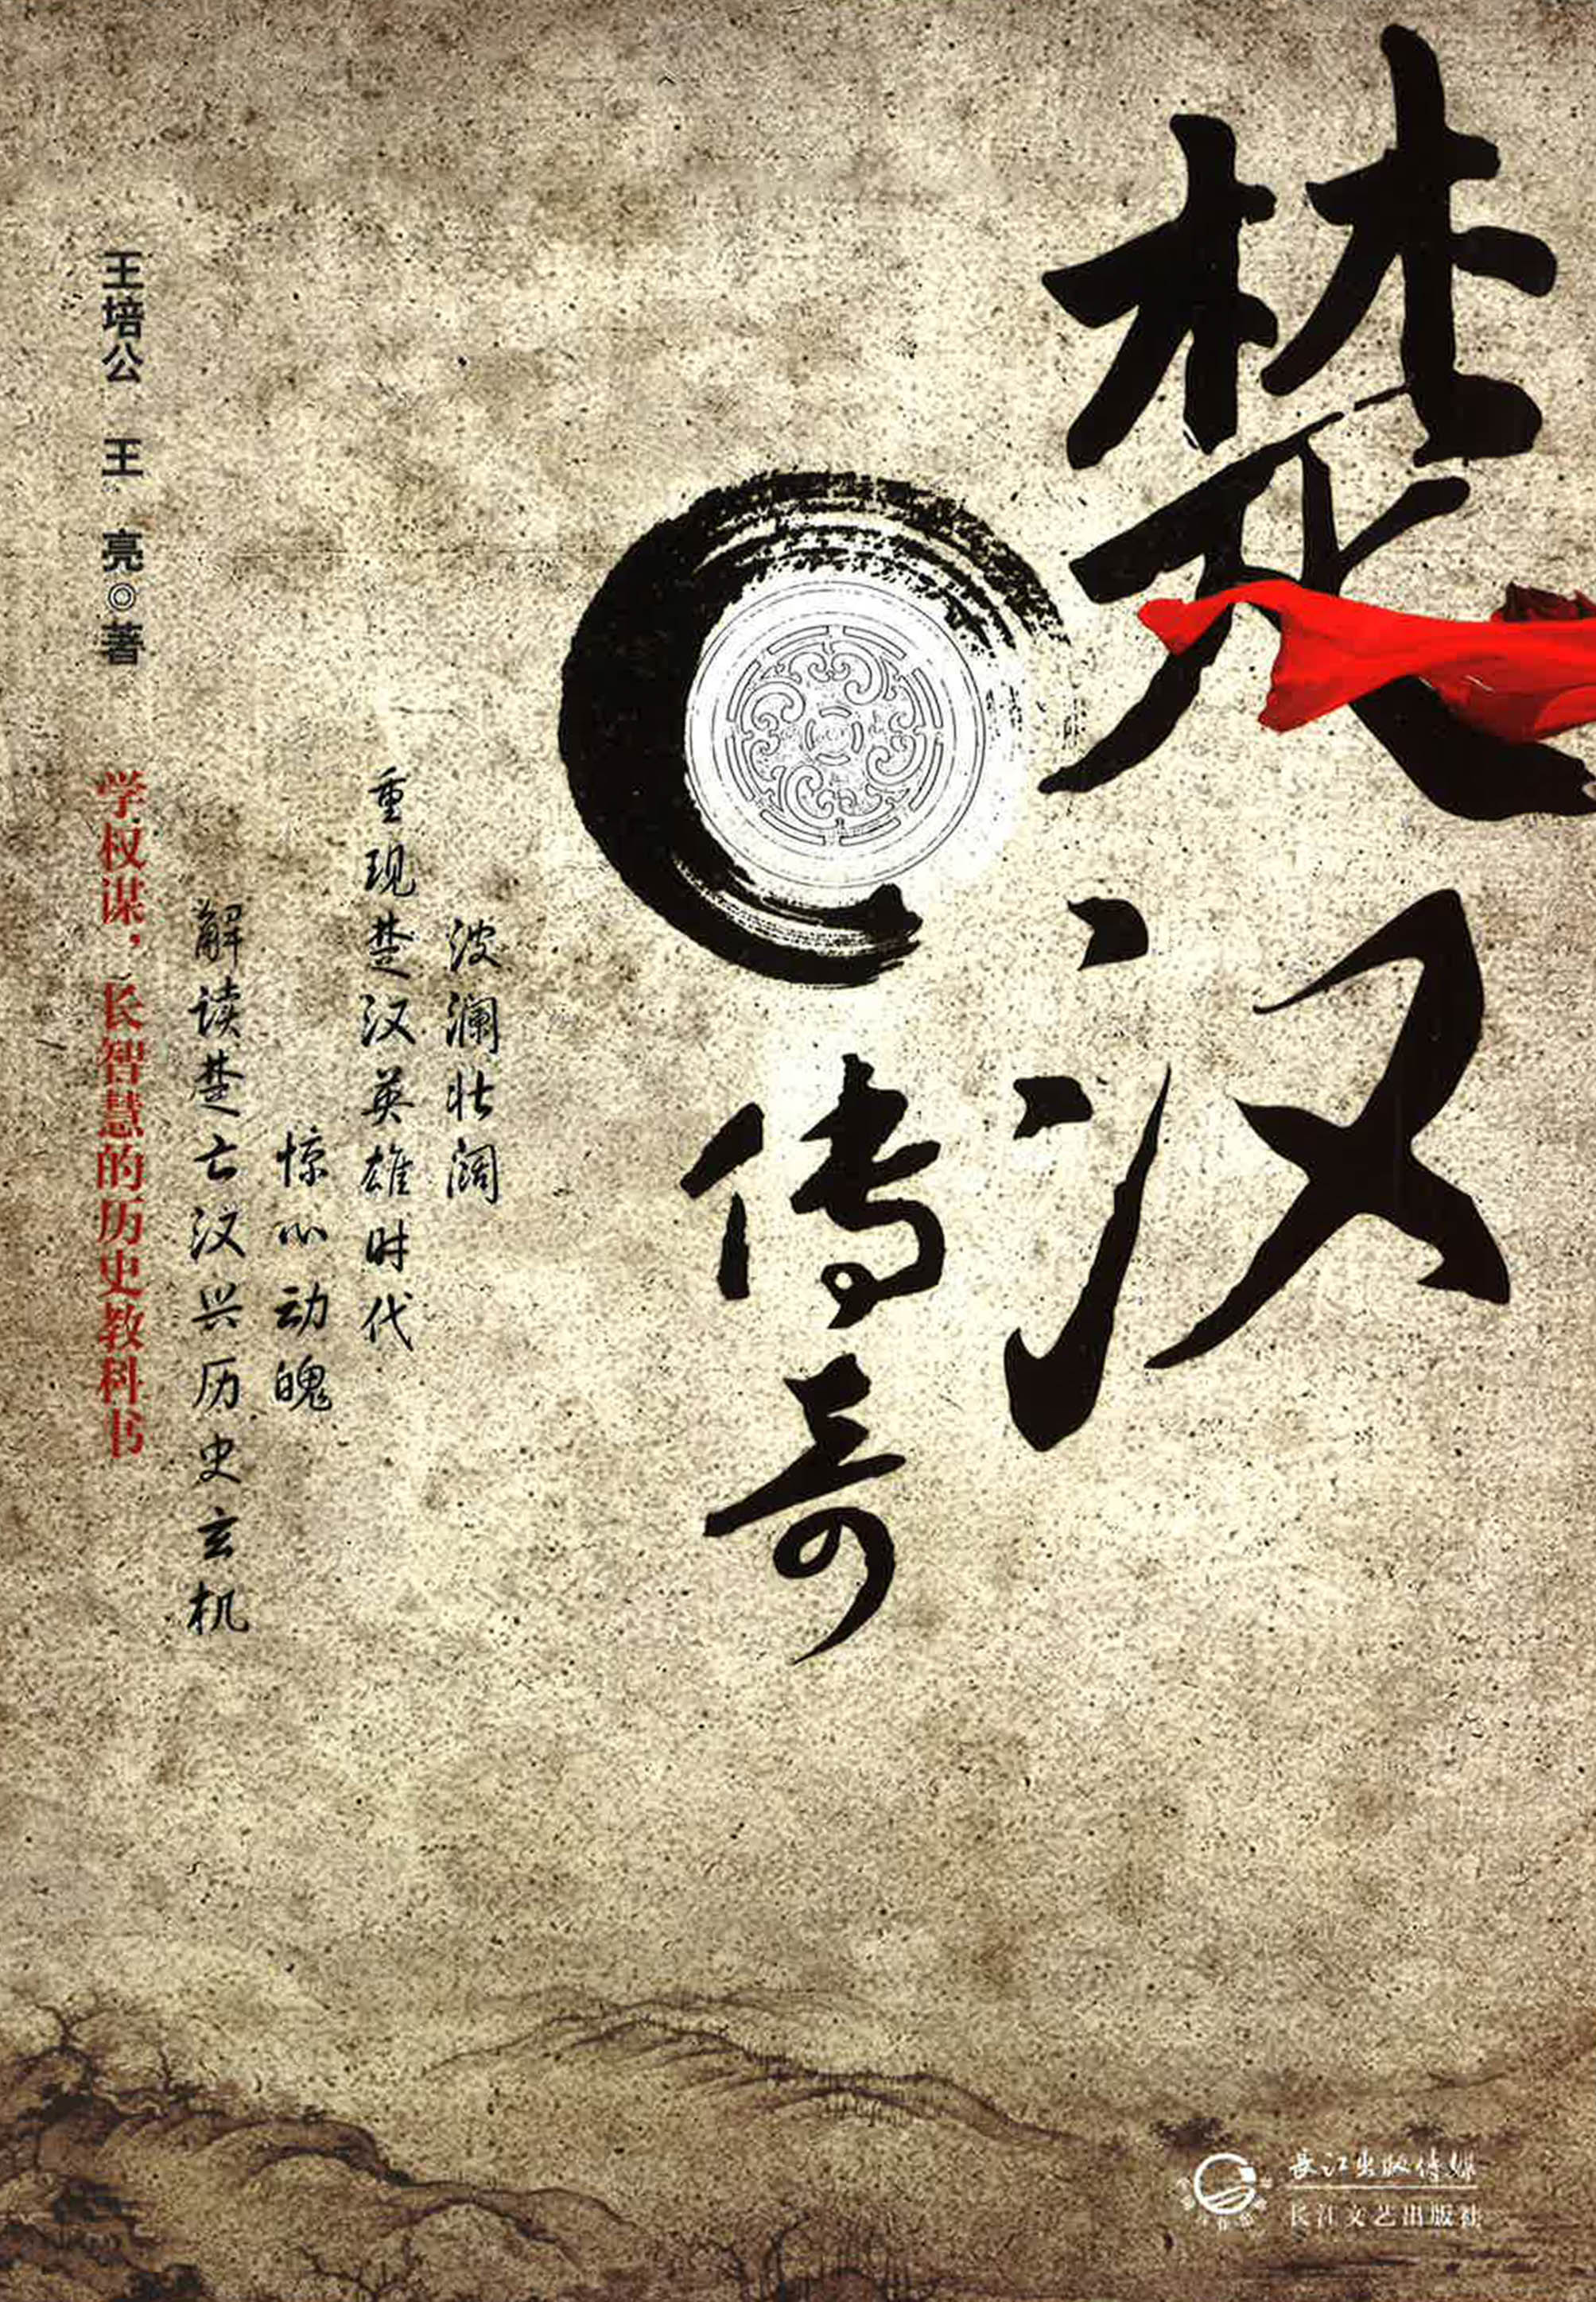 楚汉
传奇
波澜壮阔
重现楚汉英雄时代
惊心动魄
解读楚亡汉兴历史玄机
王培公 王 亮◎著
学权谋，长智慧的历史教科书
长江出版传媒
长江文艺出版社